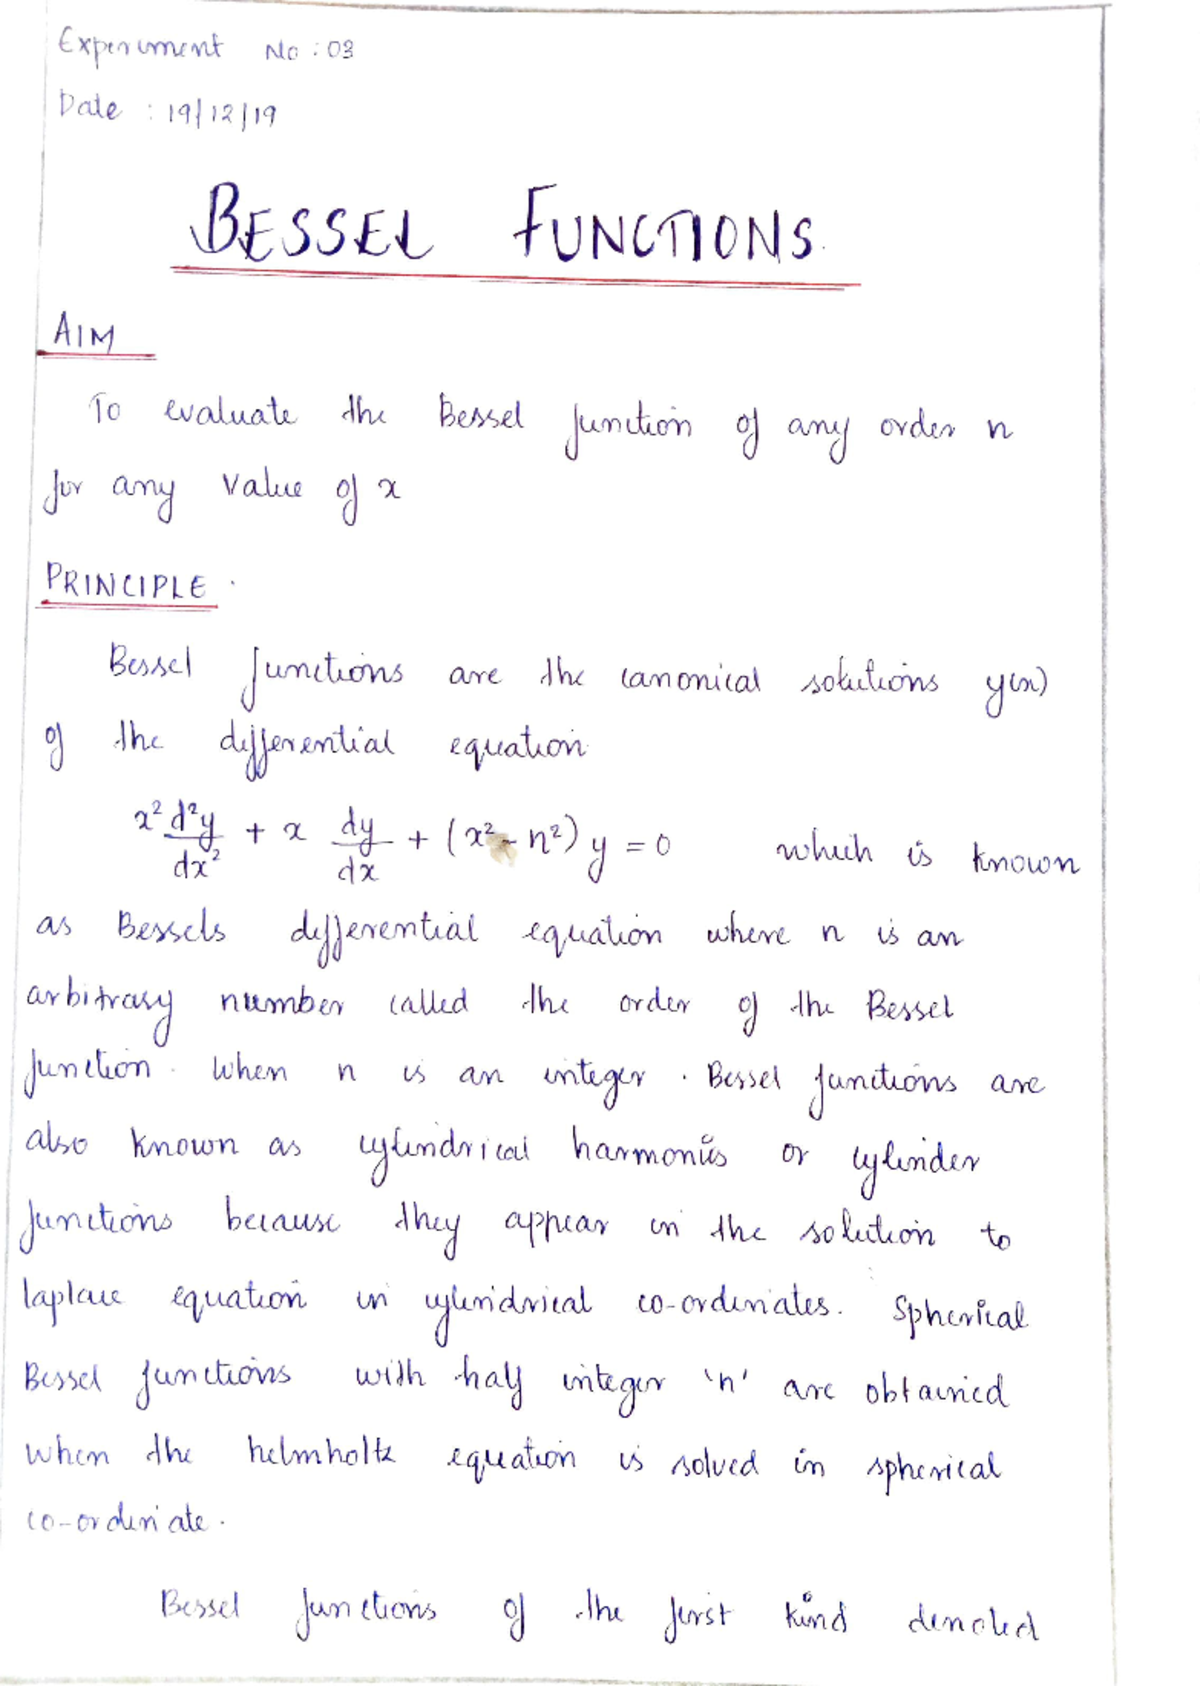 Experiment No : 03
Date : 19/12/19
BESSEL FUNCTIONS.
AIM
To evaluate the Bessel function of any order n
for any value of x
PRINCIPLE .
Bessel functions are the canonical solutions y(x)
of the differential equation
x² d²y/dx² + x dy/dx + (x² - n²) y = 0 which is known
as Bessels differential equation where n is an
arbitrary number called the order of the Bessel
function. When n is an integer . Bessel functions are
also known as cylindrical harmonics or cylinder
functions because they appear in the solution to
laplace equation in cylindrical co-ordinates. Spherical
Bessel functions with half integer 'n' are obtained
when the helmholtz equation is solved in spherical
co-ordinate .
Bessel functions of the first kind denoted